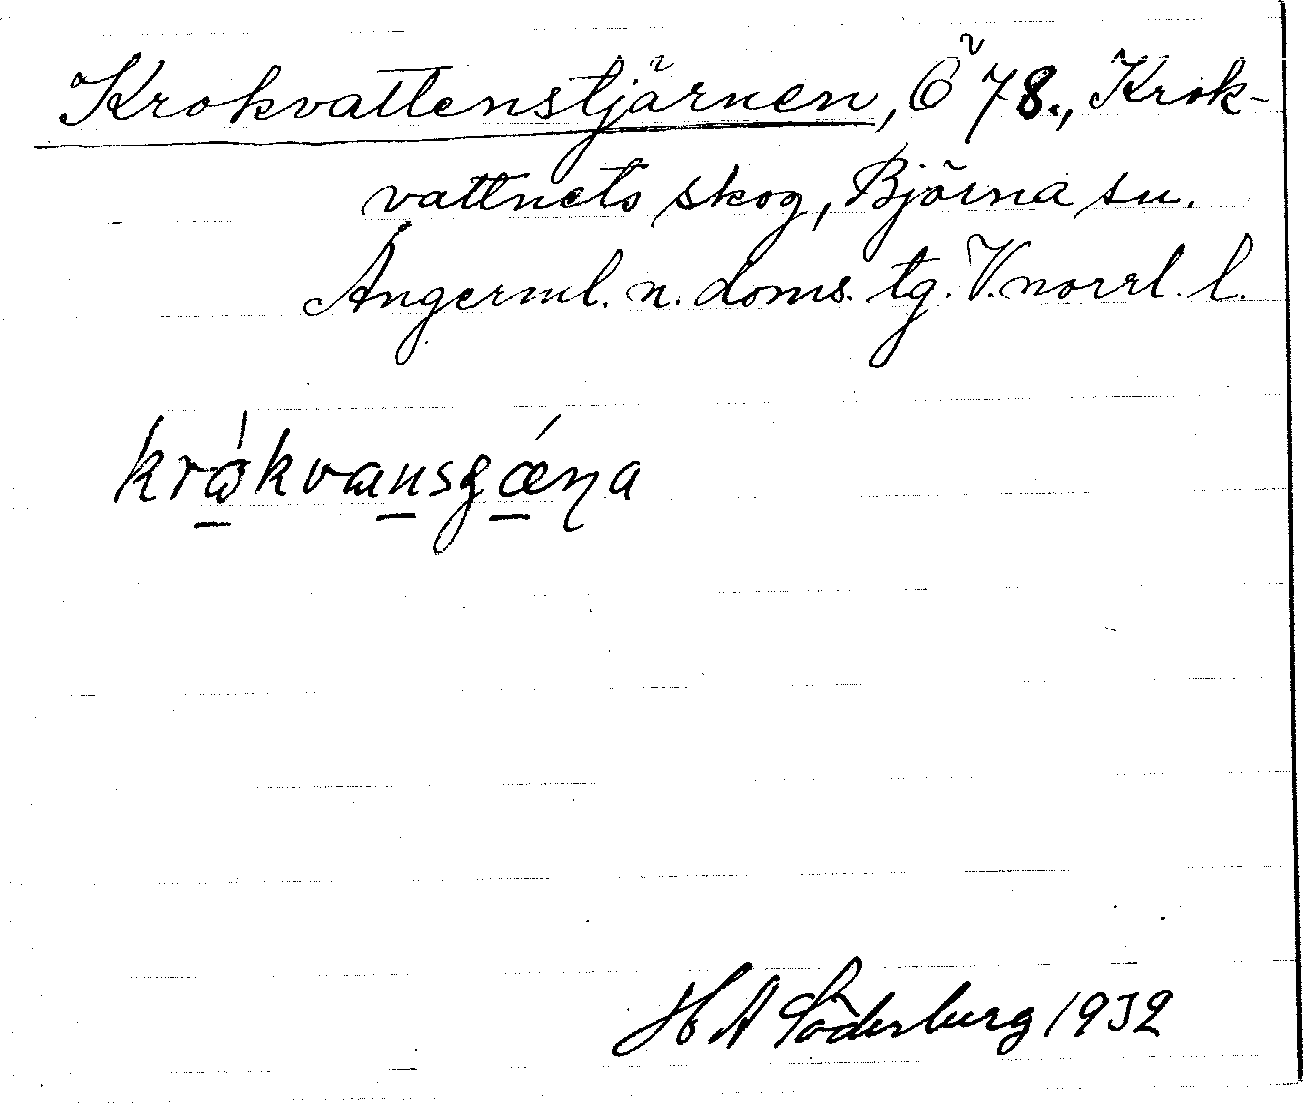 Krokvattenstjärnen, Ö 78., Krok-
vattnets skog, Björna sn.
Ångerml. n. doms. tg. V. norrl. l.
H A Söderburg 1932